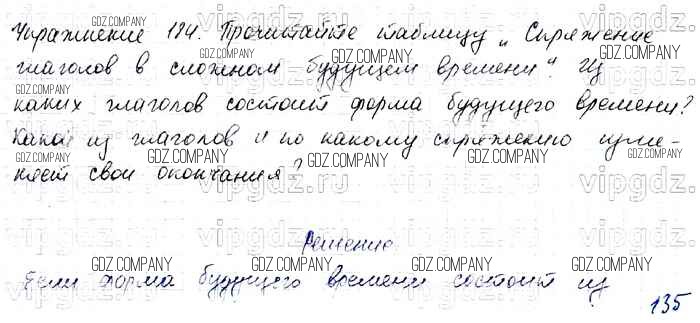 Упражнение 194. Прочитайте таблицу „Спряжение
глаголов в сложном будущем времени“. Из
каких глаголов состоит форма будущего времени?
Какой из глаголов и по какому спряжению изме-
няет свои окончания?
Решение
Если форма будущего времени состоит из
135
GDZ.COMPANY
vipgdz.ru